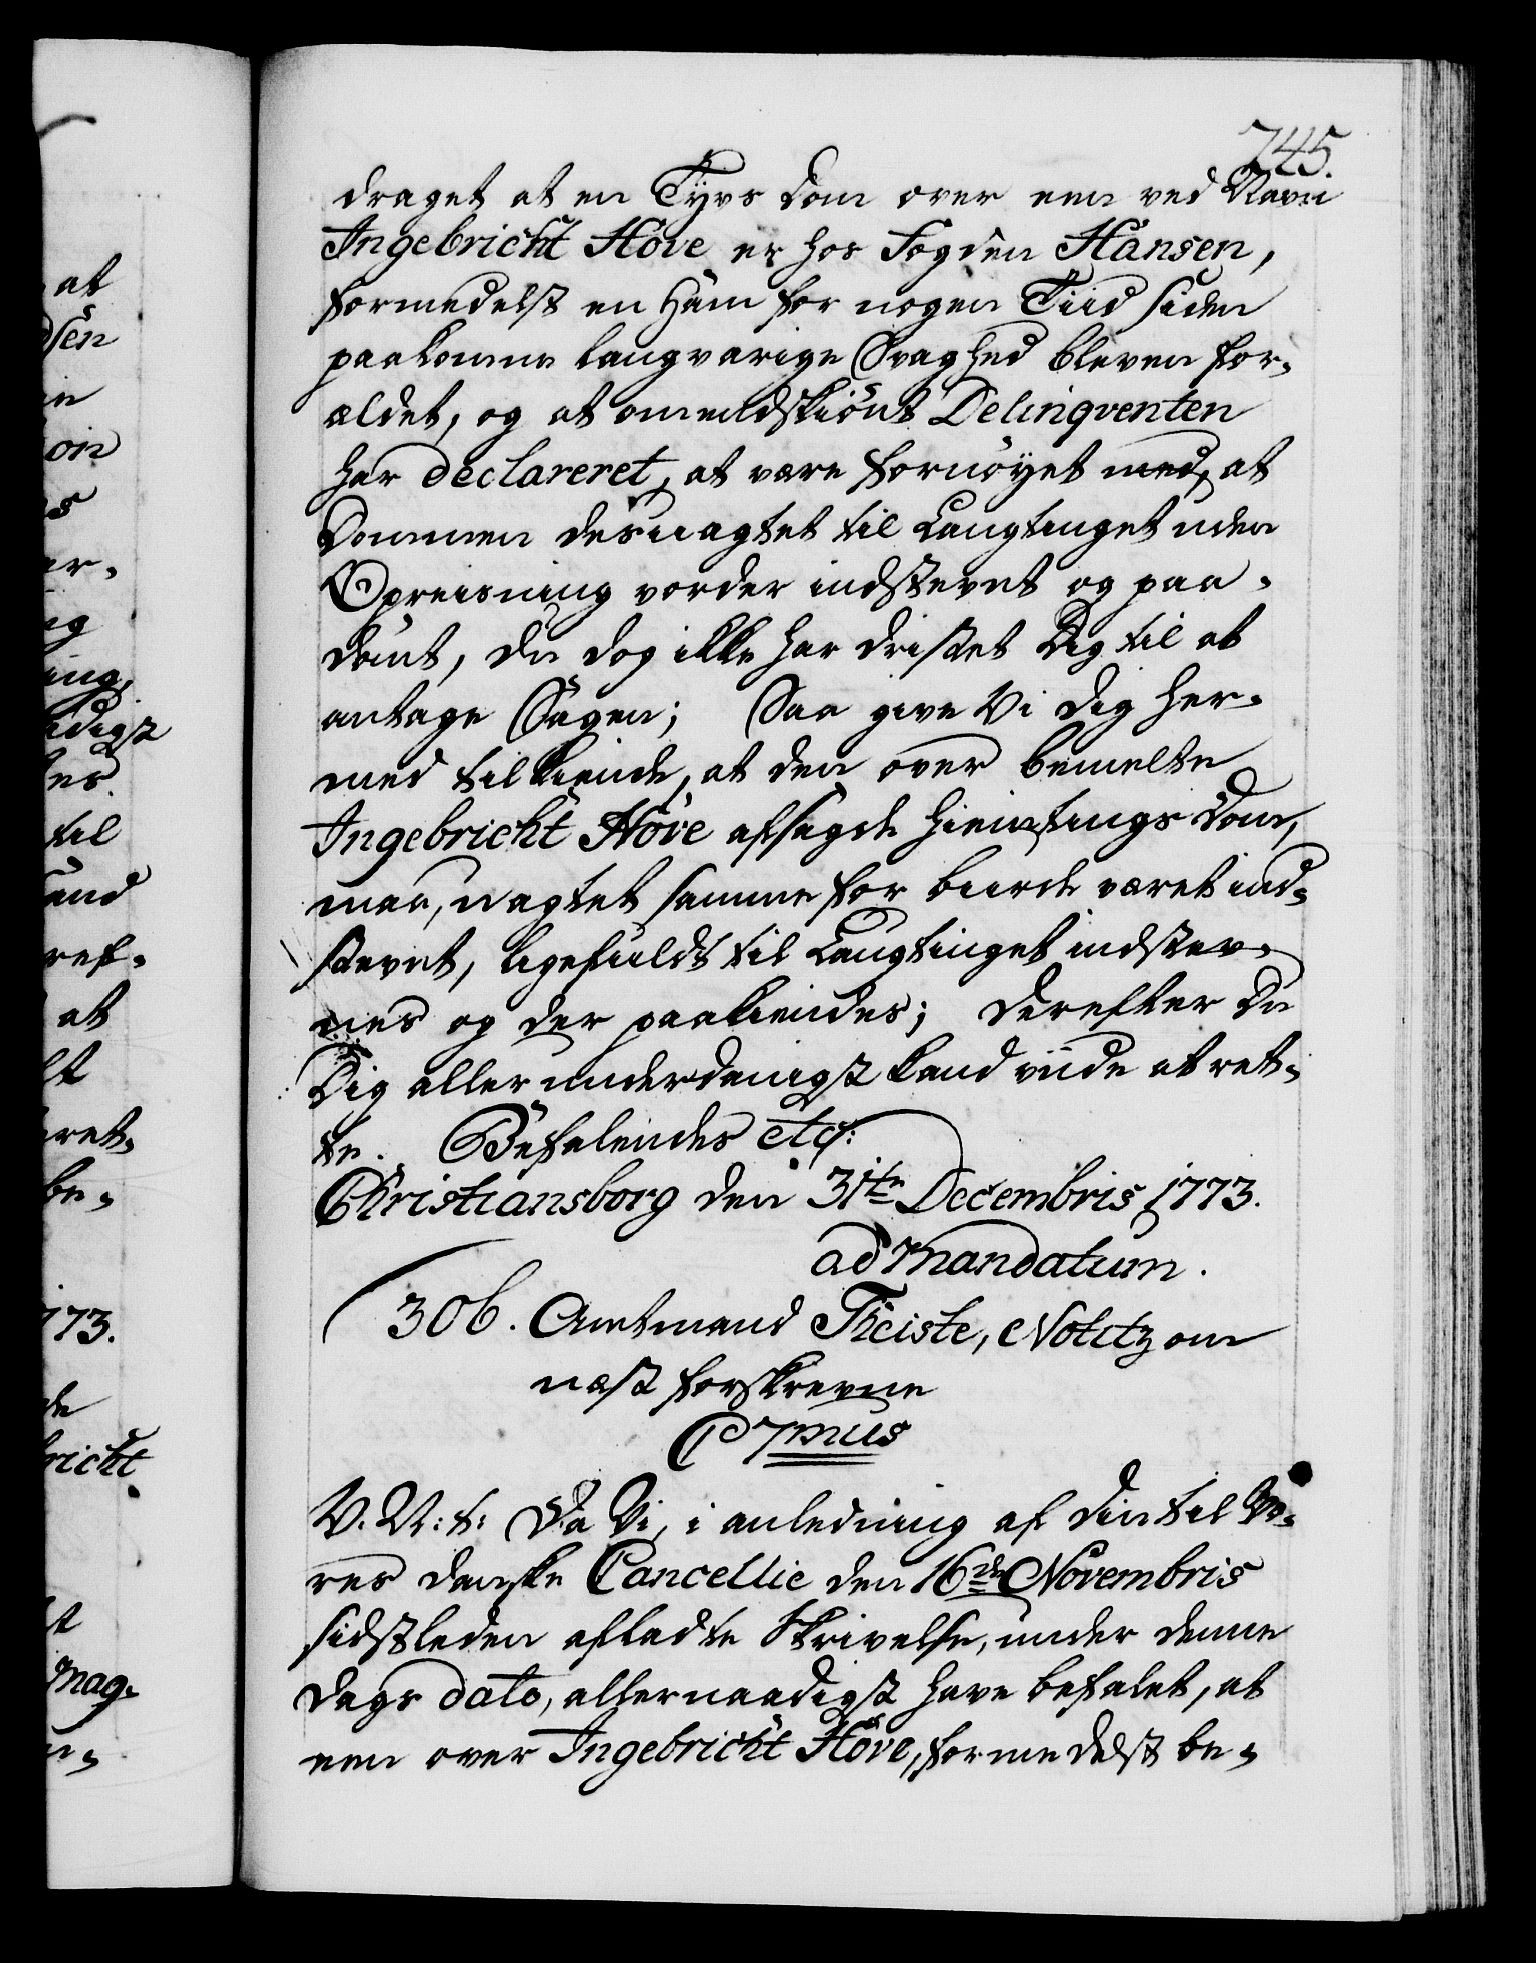 745.
draget at en Tyvs Dom over een ved Navn
Ingebricht Höve er hos Fogden Hansen,
formedelst en Ham for nogen Tiid siden
paakomne langvarige Svaghed bleven for-
ældet, og at omendskiönt Delinqventen
har declareret, at være fornöyet med, at
Dommen desuagtet til Laugtinget uden
Opreisning vorder indstevnt og paa-
dömt, Du dog ikke har dristet Dig til at
antage Sagen; Saa give Vi Dig her-
med tilkiende, at den over bemelte
Ingebricht Höve afsagde Hiemtings Dom,
maa, uagtet samme for burde været ind-
stevnt, ligefuldt til Laugtinget indstev-
nes og der paakiendes; Derefter Du
Dig allerunderdanigst kand viide at ret-
te. Befalendes etc:
Christiansborg den 31te Decembris 1773.
ad Mandatum.
306. Amtmand Theiste, Notitz om
næst forskrevne
C 7mus
V. A: t: Da Vi, i anledning af Din til Vo-
res danske Cancellie den 16de Novembris
sidstleden afladte Skrivelse, under denne
Dags dato, allernaadigst have befalet, at
een over Ingebricht Höve, formedelst be-
at
dsen
on
er-
ing,
digst
til
ref-
at
ret-
be-
1773.
de
richt
mag-